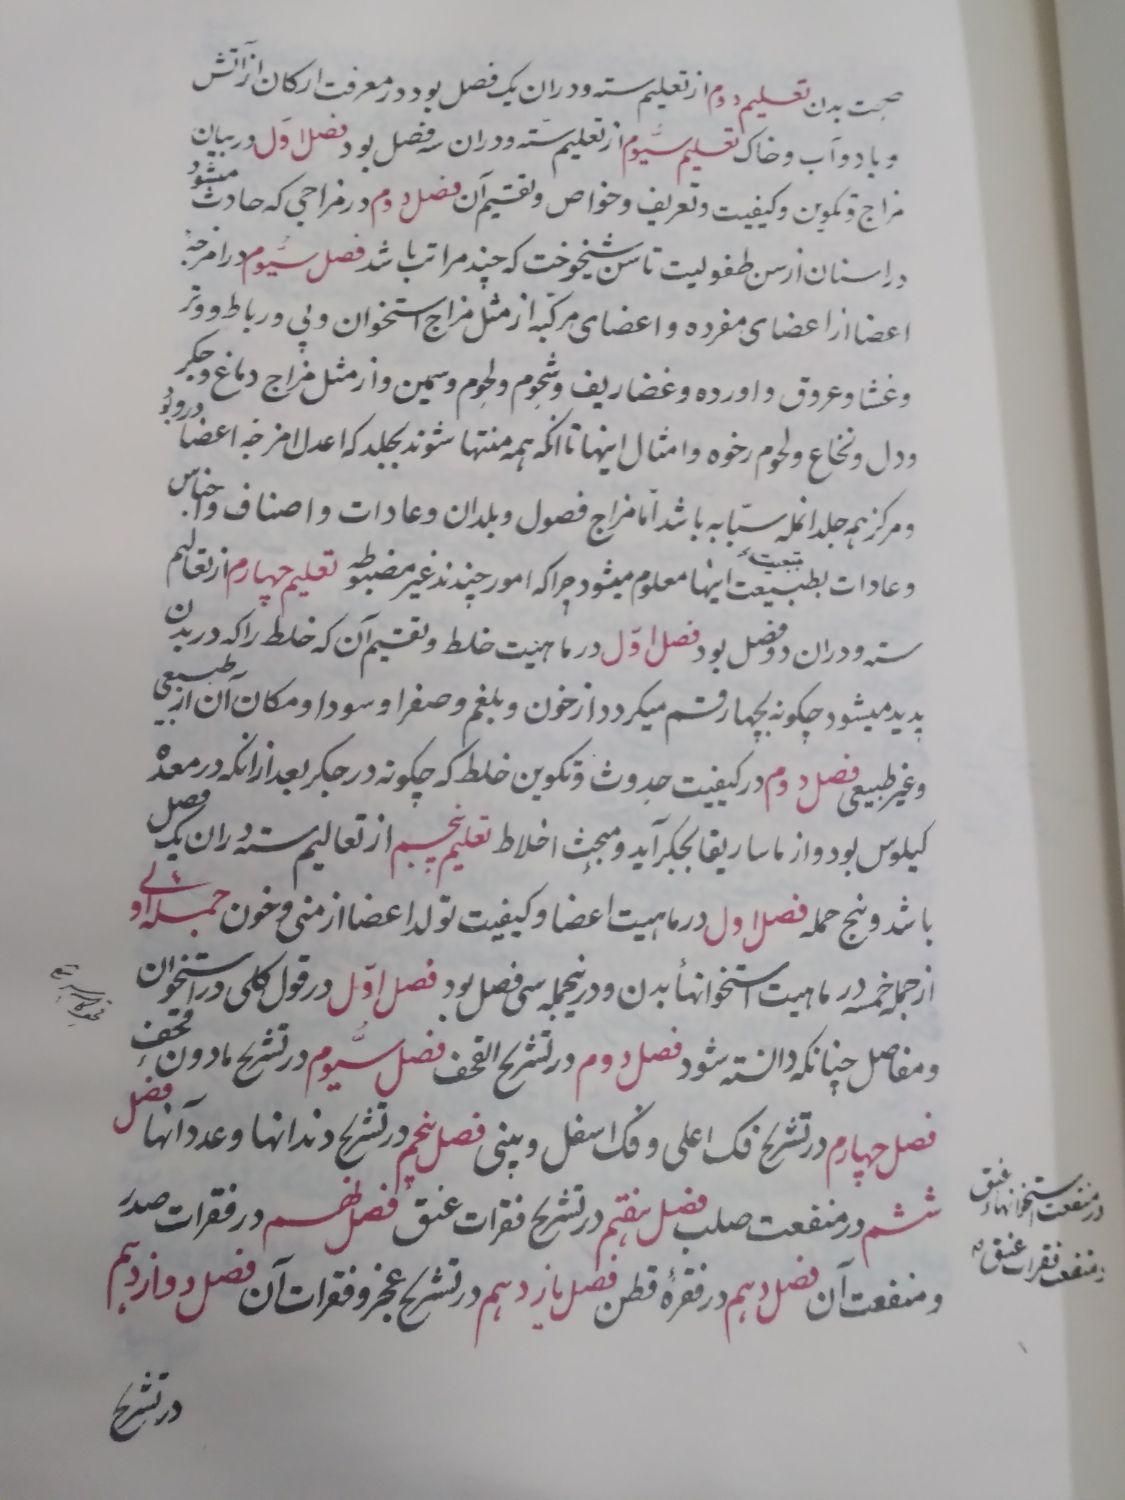 صحت بدن تعلیم دوم از تعلیم سته و دران یک فصل بود در معرفت ارکان از آتش
و باد و آب و خاک تعلیم سیُّوم از تعلیم ستّه و دران سه فصل بود فصل اوّل در بیان
مزاج و تکوین و کیفیت و تعریف و خواص و تقسیم آن فصل دوم در مزاجی که حادث میشود
در اسنان از سن طفولیت تا سن شیخوخت که چند مراتب باشد فصل سیُّوم در امزجهٔ
اعضا از اعضای مفرده و اعضای مرکّبه از مثل مزاج استخوان و پی و رباط و وتر
و غشا و عروق و اورده و غضاریف و شحوم و لحوم و سمین و از مثل مزاج دماغ و جکر
و دل و نخاع و لحوم رخوه و امثال اینها تا انکه همه منتها شوند بجلد که اعدل امزجه اعضا درو بود
و مرکز همه جلد انمله سبّابه باشد امّا مزاج فصول و بلدان و عادات و اصناف و اجناس
و عادات بطبیعت تبعیت اینها معلوم میشود چرا که امور چندند غیر مضبوطه تعلیم چهارم از تعالیم
سته و دران دو فصل بود فصل اوّل در ماهیّت خلط و تقسیم آن که خلط را که در بدن
پدید میشود چکونه بچهار قسم میکردد از خون و بلغم و صفرا و سودا و مکان آن از طبیعی
و غیر طبیعی فصل دوم در کیفیت حدوث و تکوین خلط که چکونه در جکر بعد از انکه در معده
کیلوس بود و از ماساریقا بجکر آید و مبحث اخلاط تعلیم پنجم از تعالیم سته و دران یک فصل
باشد و پنج جمله فصل اول در ماهیت اعضا و کیفیت تولد اعضا از منی و خون جملهٔ اولی
از جملهٔ خمسه در ماهیت استخوانهأ بدن و درینجمله سی فصل بود فصل اوّل در قول کلی در استخوان
و مفاصل چنانکه دانسته شود فصل دوم در تشریح القحف فصل سیُّوم در تشریح مادون قحف
فصل چهارم در تشریح فک اعلی و فک اسفل و بینی فصل پنجم در تشریح دندانها و عدد آنها فصل
ششم در منفعت صلب فصل هفتم در تشریح فقرات عنق فصل نهم در فقرات صدر
در منفعت استخوانهاء عنق
و منفعت فقرات عنق
و منفعت آن فصل دهم در فقرهٔ قطن فصل یازدهم در تشریح عجز و فقرات آن فصل دوازدهم
در تشریح